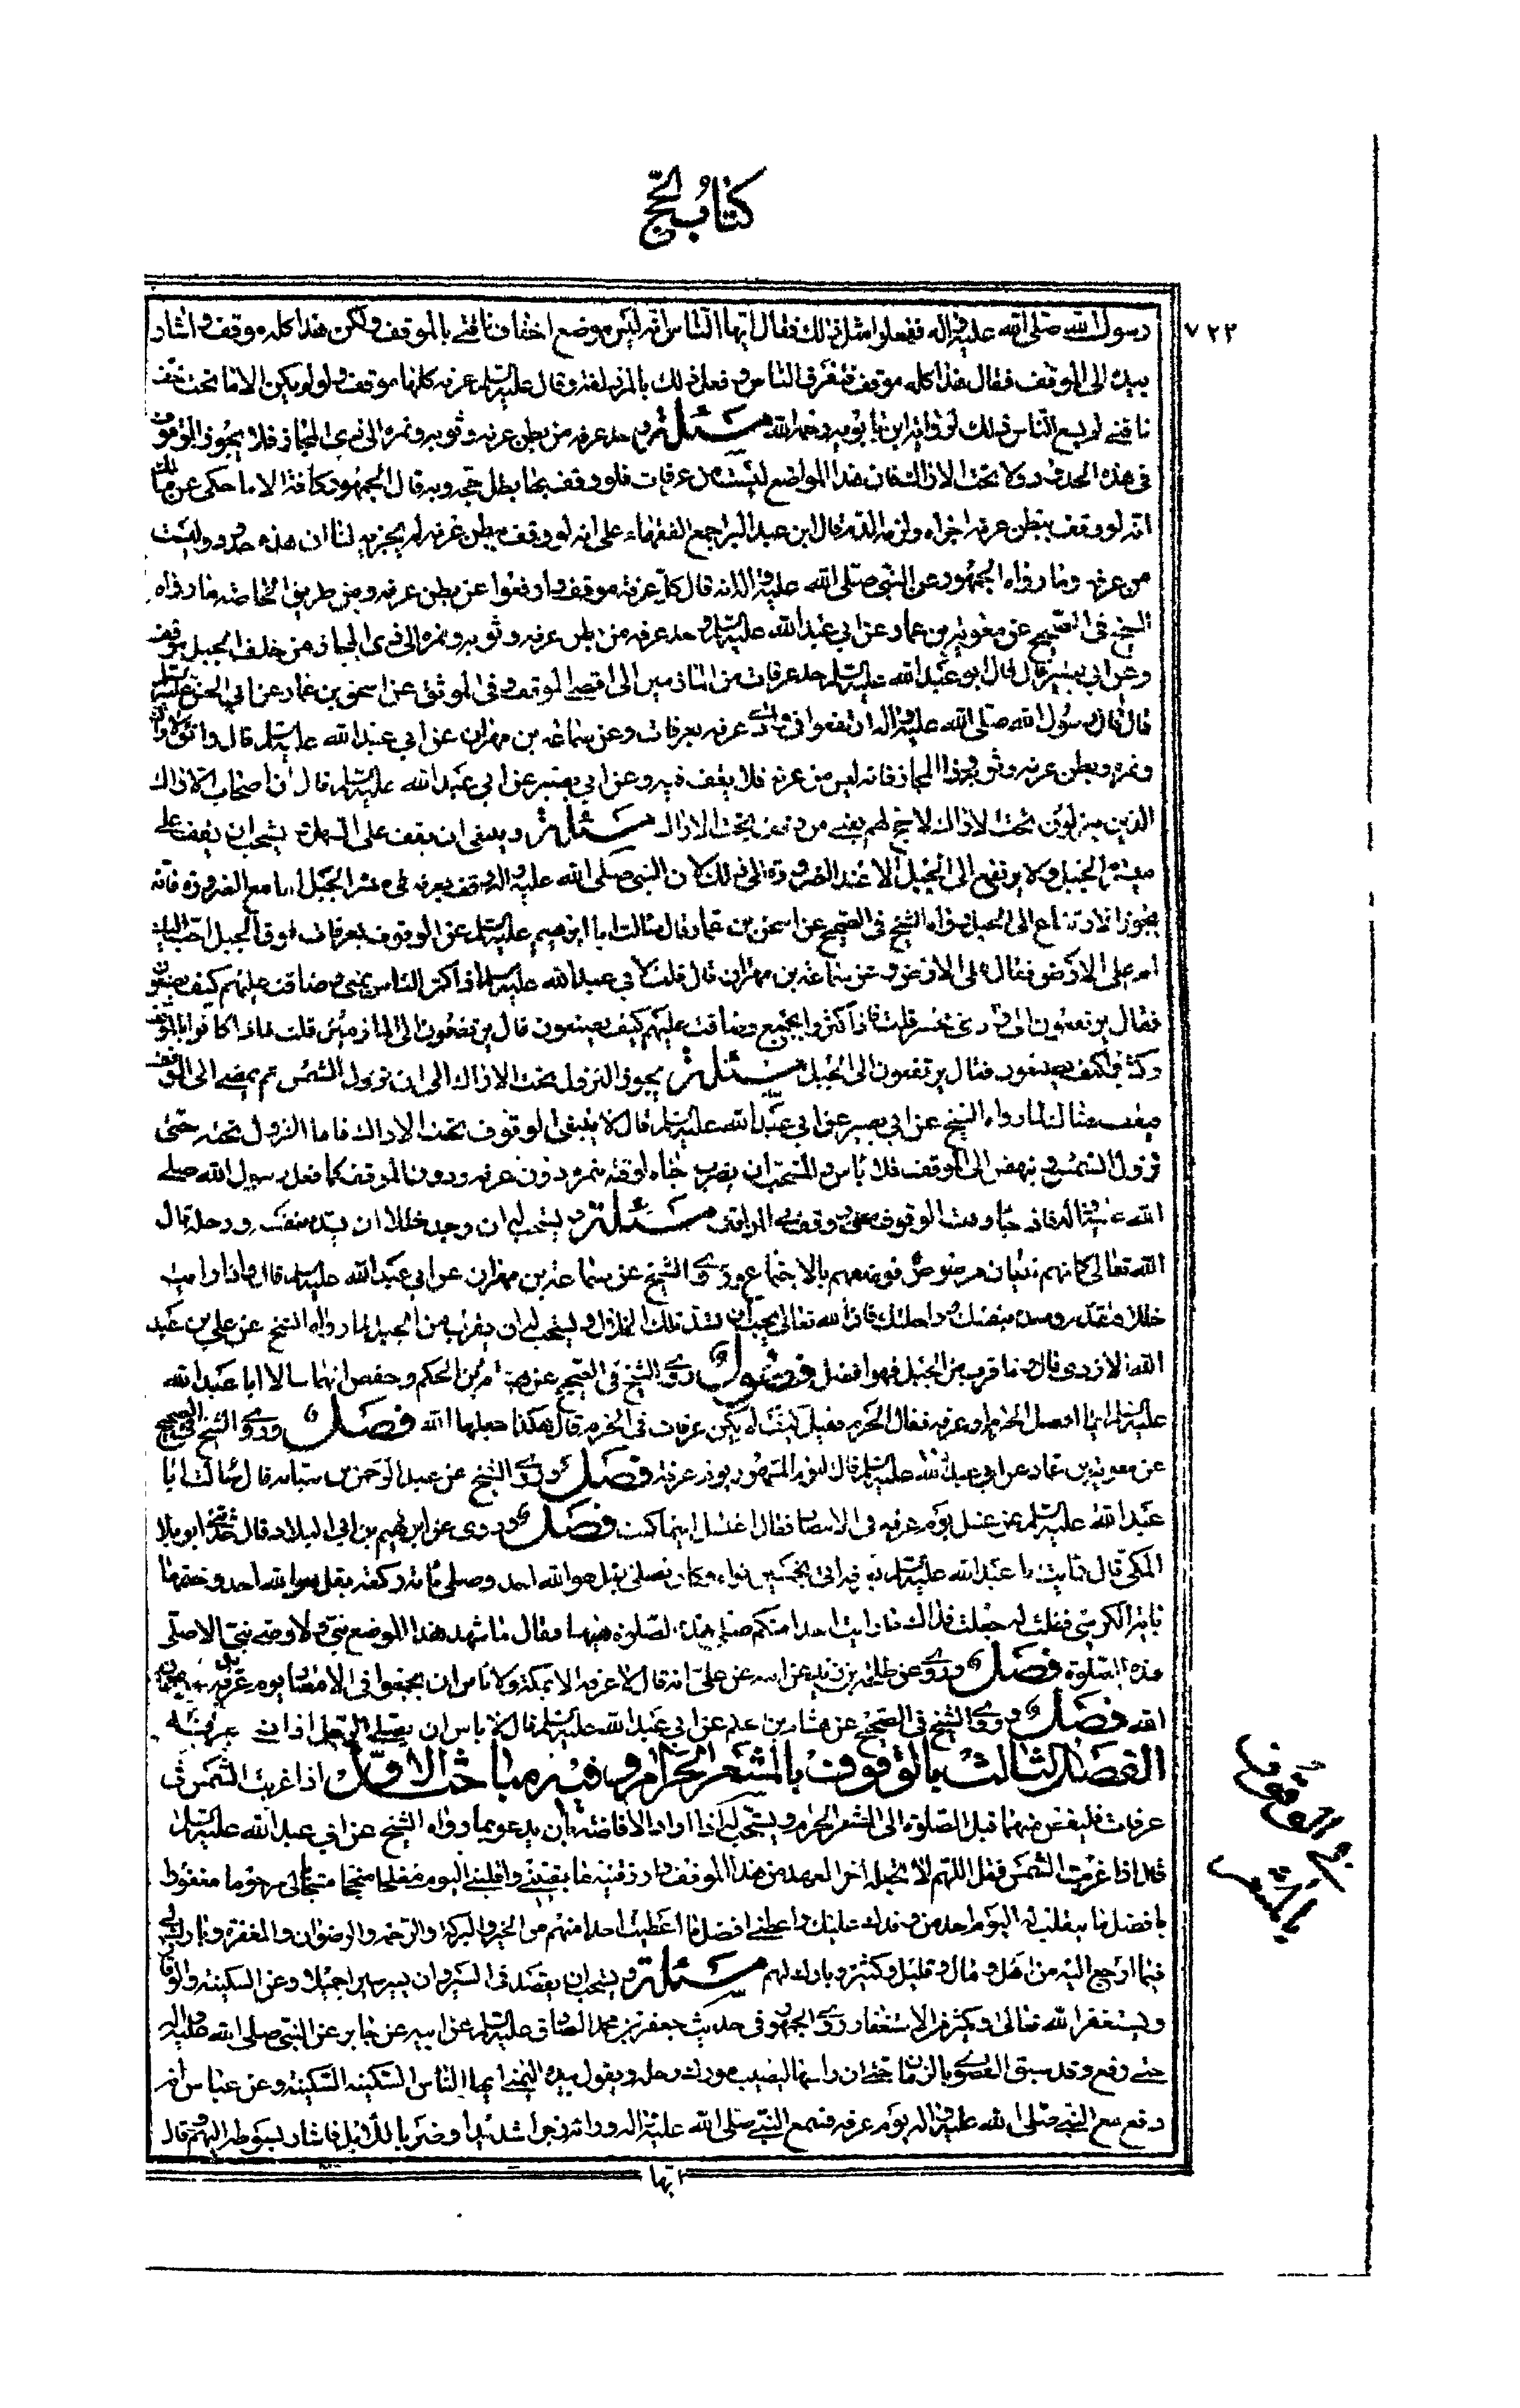 كتاب الحج
٧٢٢
رسول الله صلى الله عليه واله ففعلوا مثل ذلك فقال ايها الناس انه ليس موضع اخفاف ناقتي بالموقف ولكن هذا كله موقف واشار
بيده الى الموقف فقال هذا كله موقف فتفرق الناس وفعل ذلك بالمزدلفة وقال عليه السلم عرفة كلها موقف ولو لم يكن الا ما تحت خف
ناقتي لم يسع الناس ذلك رواه ابن بابويه رحمه الله مسئلة وحد عرفة من بطن عرنة وثوية ونمرة الى ذي المجاز فلا يجوز الوقوف
في هذه الحدود ولا تحت الاراك فان هذه المواضع ليست من عرفات فلو وقف بها بطل حجه وبه قال الجمهور كافة الا ما حكى عن مالك
انه لو وقف ببطن عرنة اجزاه ولزمه الدم قال ابن عبد البر اجمع الفقهاء على انه لو وقف ببطن عرنة لم يجزه لنا ان هذه حدود وليست
من عرفة وما رواه الجمهور عن النبي صلى الله عليه واله انه قال كل عرفة موقف وارفعوا عن بطن عرنة ومن طريق الخاصة ما رواه
الشيخ في الصحيح عن معوية بن عمار عن ابي عبد الله عليه السلم وحد عرفة من بطن عرنة وثوية ونمرة الى ذي المجاز ومن خلف الجبل موقف
وعن ابي بصير قال قال ابو عبد الله عليه السلم حد عرفات من المازمين الى اقصى الموقف وفي الموثق عن اسحق بن عمار عن ابي الحسن عليه السلم
قال قال رسول الله صلى الله عليه واله ارتفعوا عن وادي عرنة بعرفات وعن سماعة بن مهران عن ابي عبد الله عليه السلم قال واتق الاراك
ونمرة وبطن عرنة وثوية وذا المجاز فانه ليس من عرفة فلا يقف فيه وعن ابي بصير عن ابي عبد الله عليه السلم قال ان اصحاب الاراك
الذين ينزلون تحت الاراك لا حج لهم يعني من وقف تحت الاراك مسئلة وينبغي ان يقف على السهل يستحب ان يقف على
ميسرة الجبل ولا يرتفع الى الجبل الا عند الضرورة الى ذلك لان النبي صلى الله عليه واله وقف بعرفة في ميسرة الجبل اما مع الضرورة فانه
يجوز الارتفاع الى الجبل رواه الشيخ في الصحيح عن اسحق بن عمار قال سالت ابا ابرهيم عليه السلم عن الوقوف بعرفات فوق الجبل احب اليك
ام على الارض فقال على الارض وعن سماعة بن مهران قال قلت لابي عبد الله عليه السلم اذا كثر الناس بمنى وضاقت عليهم كيف يصنعون
فقال يرتفعون الى وادي محسر قلت فاذا كثروا بجمع وضاقت عليهم كيف يصنعون قال يرتفعون الى المازمين قلت فاذا كانوا بالموقف
وكثروا كيف يصنعون فقال يرتفعون الى الجبل مسئلة يجوز النزول تحت الاراك الى ان تزول الشمس ثم يمضي الى الموقف
فيقف هنالك لما رواه الشيخ عن ابي بصير عن ابي عبد الله عليه السلم قال لا ينبغي الوقوف تحت الاراك فاما النزول تحته حتى
تزول الشمس وتنهض الى الموقف فلا باس والمستحب ان يضرب خباه او قبته بنمرة دون عرفة ودون الموقف كما فعل رسول الله صلى
الله عليه واله فاذا جاء وقت الوقوف مضى ووقف في الموقف مسئلة ويستحب له ان وجد خللا ان يسده بنفسه ورحله قال
الله تعالى كانهم بنيان مرصوص فوصفهم بالاجتماع وروى الشيخ عن سماعة بن مهران عن ابي عبد الله عليه السلم قال فاذا رايت
خللا فتقدم وسده بنفسك وراحلتك فان الله تعالى يحب ان تسد تلك الخلال ويستحب له ان يقرب من الجبل لما رواه الشيخ عن علي بن عبد
الله الازدي قال وما قرب من الجبل فهو افضل فصول روى الشيخ في الصحيح عن هشام بن الحكم وحفص انهما سالا ابا عبد الله
عليه السلم ايما افضل الحرم او عرفة فقال الحرم فقيل كيف لم يكن عرفات في الحرم قال هكذا جعلها الله فصل وروى الشيخ في الصحيح
عن معوية بن عمار عن ابي عبد الله عليه السلم قال اليوم المشهود يوم عرفة فصل وروى الشيخ عن عبد الرحمن بن سيابة قال سالت ابا
عبد الله عليه السلم عن غسل يوم عرفة في الامصار فقال اغتسل اينما كنت فصل وروى عن ابرهيم بن ابي البلاد قال حدثني ابو بلال
المكي قال رايت ابا عبد الله عليه السلم بعرفة اتى بخمسين نواة وكان يصلي بقل هو الله احد وصلى مائة ركعة بقل هو الله احد وختمها
باية الكرسي فقلت له جعلت فداك ما رايت احدا منكم صلى هذه الصلوة ههنا فقال ما شهد هذا الموضع نبي ولا وصي نبي الا صلى
هذه الصلوة فصل وروى عن طلحة بن زيد عن ابيه عن علي انه قال لا عرفة الا بمكة ولا باس ان يجتمعوا في الامصار يوم عرفة يدعون
الله فصل وروى الشيخ في الصحيح عن هشام بن سالم عن ابي عبد الله عليه السلم قال لا باس ان يصلي الرجل اذا
الفصل الثالث في الوقوف بالمشعر الحرام وفيه مباحث الاول اذا غربت الشمس في
عرفات فليفض منها قبل الصلوة الى المشعر الحرام ويستحب له اذا اراد الافاضة ان يدعو بما رواه الشيخ عن ابي عبد الله عليه السلم
قال اذا غربت الشمس فقل اللهم لا تجعله اخر العهد من هذا الموقف وارزقنيه ما ابقيتني واقلبني اليوم مفلحا منجحا مستجابا لي مرحوما مغفورا
بافضل ما ينقلب به اليوم احد من وفدك عليك واعطني افضل ما اعطيت احدا منهم من الخير والبركة والرحمة والرضوان والمغفرة وبارك لي
فيما ارجع اليه من اهل ومال وقليل وكثير وبارك لهم مسئلة ويستحب ان يقصد في السير وان يسير سيرا جميلا وعن السكينة والوقار
ويستغفر الله تعالى ويكثر من الاستغفار روى الجمهور في حديث جعفر بن محمد الصادق عليه السلم عن ابيه عن جابر عن النبي صلى الله عليه واله
حتى دفع وقد سبق القصوى بالزمام حتى ان راسها ليصيب مورك رحله ويقول بيده اليمنى ايها الناس السكينة السكينة وعن عباس انه
دفع مع النبي صلى الله عليه واله يوم عرفة فسمع النبي صلى الله عليه واله وراءه زجرا شديدا وضربا للابل فاشار بسوطه اليهم وقال
ايها
في الوقوف
بالمشعر